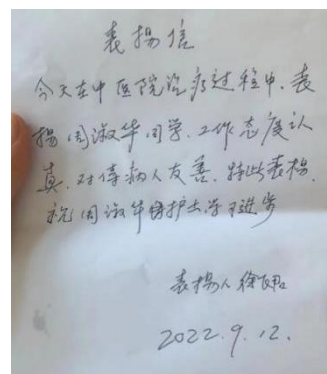 表扬信
今天在中医院治疗过程中.表
扬周淑华同学.工作态度认
真.对待病人友善.特此表扬.
祝周淑华护士学习进步
表扬人徐
2022.9.12.